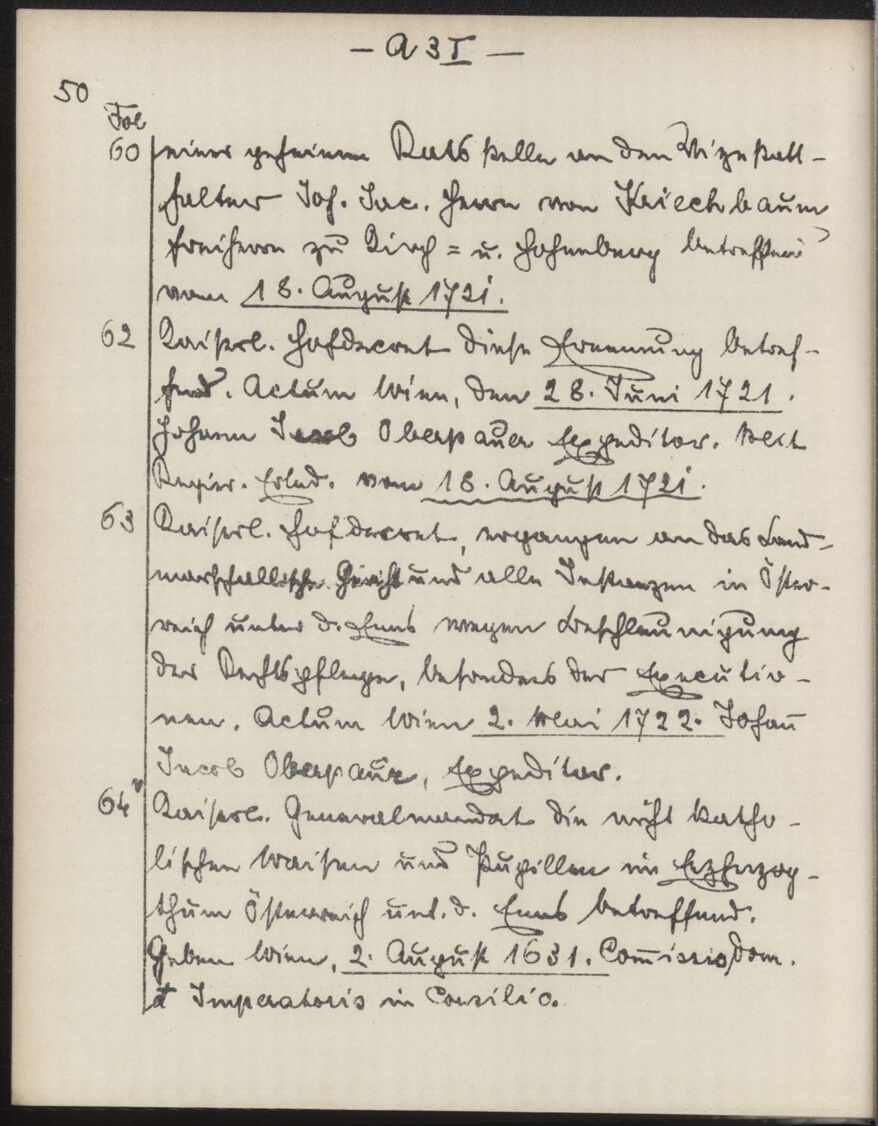 – A 3 I –
50
Fol
60 einer geheimen Ratsstelle an den Vizestatt-
halter Joh. Jac. Herrn von Kriechbaum
Freiherrn zu Kirch= u. Hohenberg betreffend
vom 18. August 1721.
62 Kaiserl. Hofdecret diese Ernennung betref-
fend. Actum Wien, den 28. Juni 1721.
Johann Jacob Oberpauer Expeditor. Mit
Regier. Erled. vom 18. August 1721.
63 Kaiserl. Hofdecret, ergangen an das Land-
marschallische Gericht und alle Instanzen in Öster-
reich unter d. Enns wegen Beschleunigung
der Rechtspflege, besonders der Executio-
nen. Actum Wien 2. Mai 1722. Johan̄
Jacob Oberpaur, Expeditor.
64v Kaiserl. Generalmandat die nicht katho-
lischen Waisen und Pupillen im Erzherzog-
thum Österreich unt. d. Enns betreffend.
Geben Wien, 2. August 1631. Com̄issio Dom.
Imperatoris in Consilio.